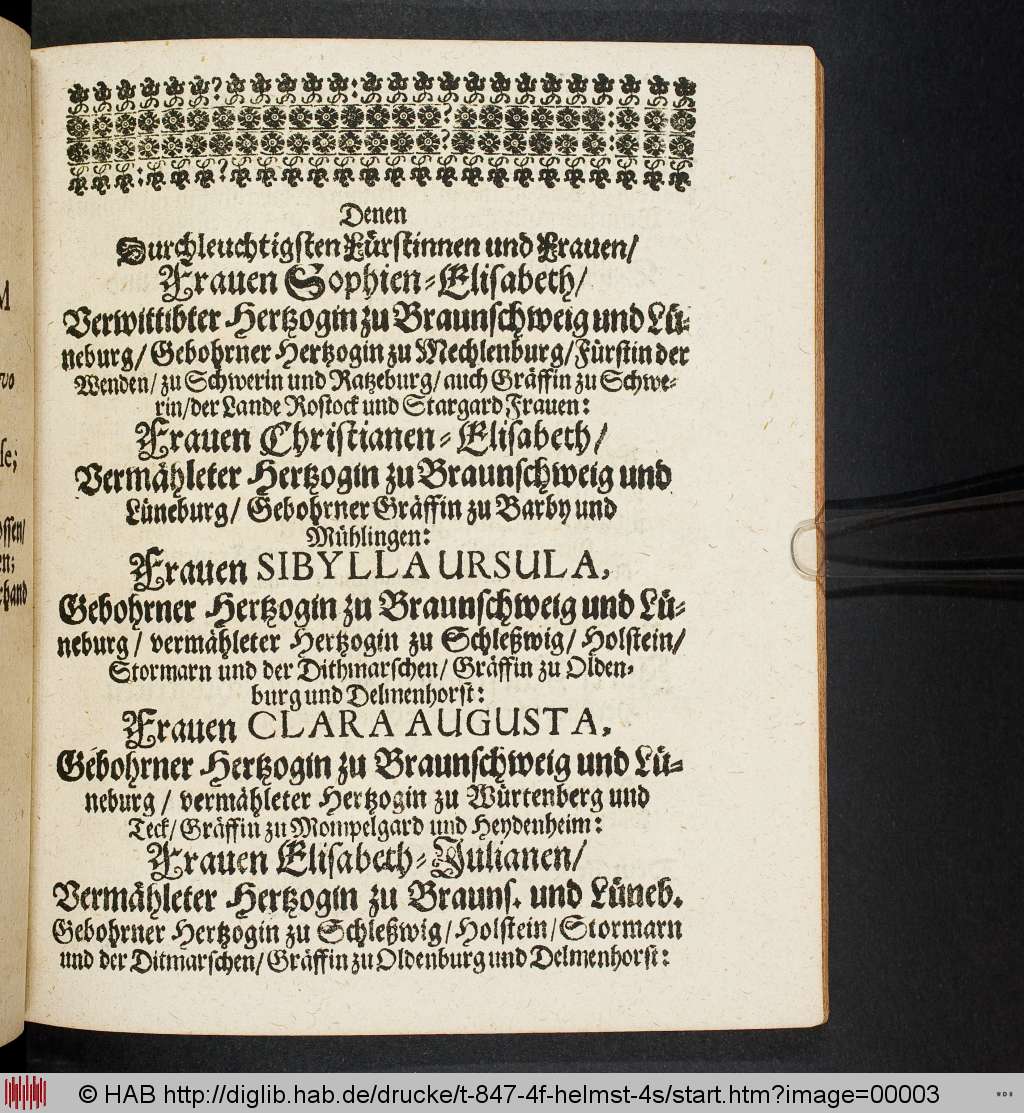 Denen
Durchleuchtigsten Fürstinnen und Frauen/
Frauen Sophien-Elisabeth/
Verwittibter Hertzogin zu Braunschweig und Lü-
neburg/ Gebohrner Hertzogin zu Mechlenburg/ Fürstin der
Wenden/ zu Schwerin und Ratzeburg/ auch Gräffin zu Schwe-
rin/ der Lande Rostock und Stargard Frauen:
Frauen Christianen-Elisabeth/
Vermähleter Hertzogin zu Braunschweig und
Lüneburg/ Gebohrner Gräffin zu Barby und
Mühlingen:
Frauen SIBYLLA URSULA,
Gebohrner Hertzogin zu Braunschweig und Lü-
neburg/ vermähleter Hertzogin zu Schleßwig/ Holstein/
Stormarn und der Dithmarschen/ Gräffin zu Olden-
burg und Delmenhorst:
Frauen CLARA AUGUSTA,
Gebohrner Hertzogin zu Braunschweig und Lü-
neburg/ vermähleter Hertzogin zu Würtenberg und
Teck/ Gräffin zu Mompelgard und Heydenheim:
Frauen Elisabeth-Julianen/
Vermähleter Hertzogin zu Brauns. und Lüneb.
Gebohrner Hertzogin zu Schleßwig/ Holstein/ Stormarn
und der Ditmarschen/ Gräffin zu Oldenburg und Delmenhorst:
© HAB http://diglib.hab.de/drucke/t-847-4f-helmst-4s/start.htm?image=00003